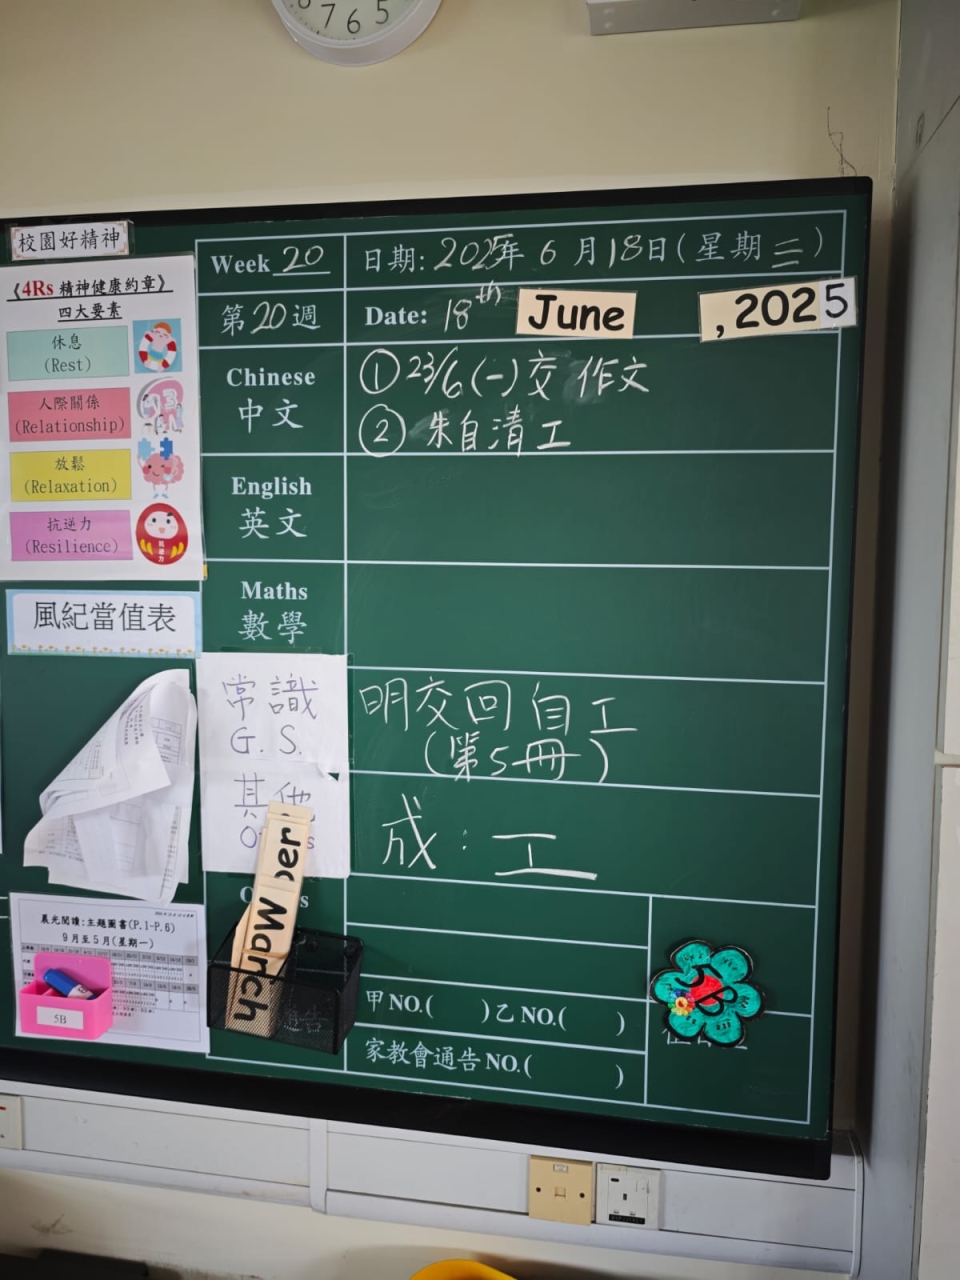 7 6 5
校園好精神
《4Rs 精神健康約章》
四大要素
休息
(Rest)
人際關係
(Relationship)
放鬆
(Relaxation)
抗逆力
(Resilience)
風紀當值表
晨光閱讀:主題圖書(P.1-P.6)
9月至5月(星期一)
5B
Week 20
日期: 2025年 6 月 18日(星期三)
第20週
Date: 18th June , 2025
Chinese
中文
① 23/6 (一) 交 作文
② 朱自清工
English
英文
Maths
數學
常識
G. S.
明交回自工
(第5冊)
其他
成:工
ber
March
通告
甲NO.( )乙NO.( )
家教會通告NO.( )
5B